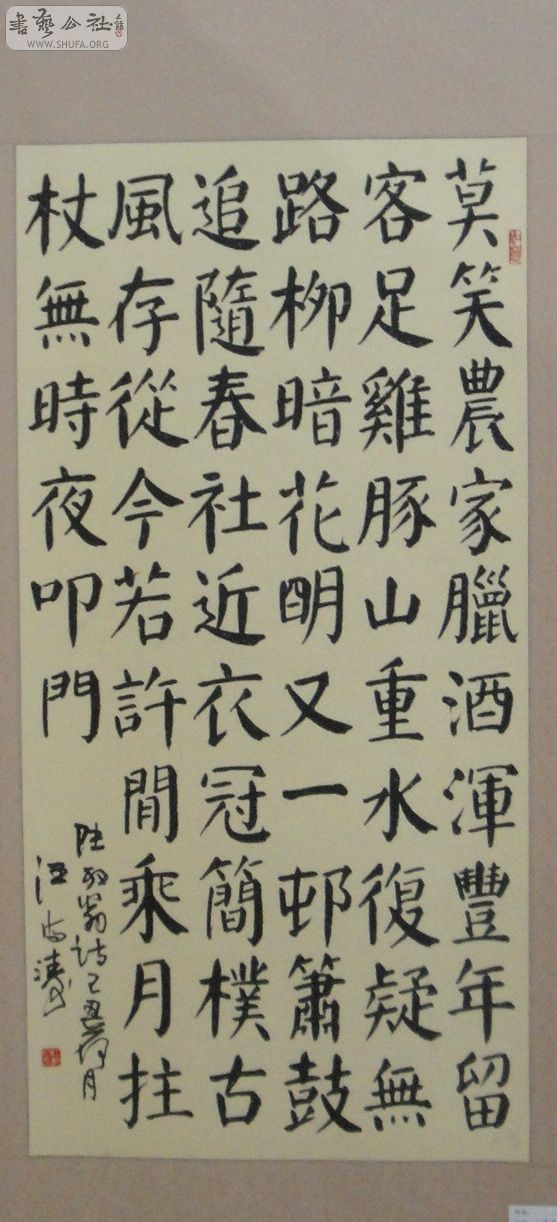 書藝公社
WWW.SHUFA.ORG
莫笑農家臘酒渾豐年留
客足雞豚山重水復疑無
路柳暗花明又一邨簫鼓
追隨春社近衣冠簡樸古
風存從今若許閒乘月拄
杖無時夜叩門
陸放翁詩己丑荷月
汪